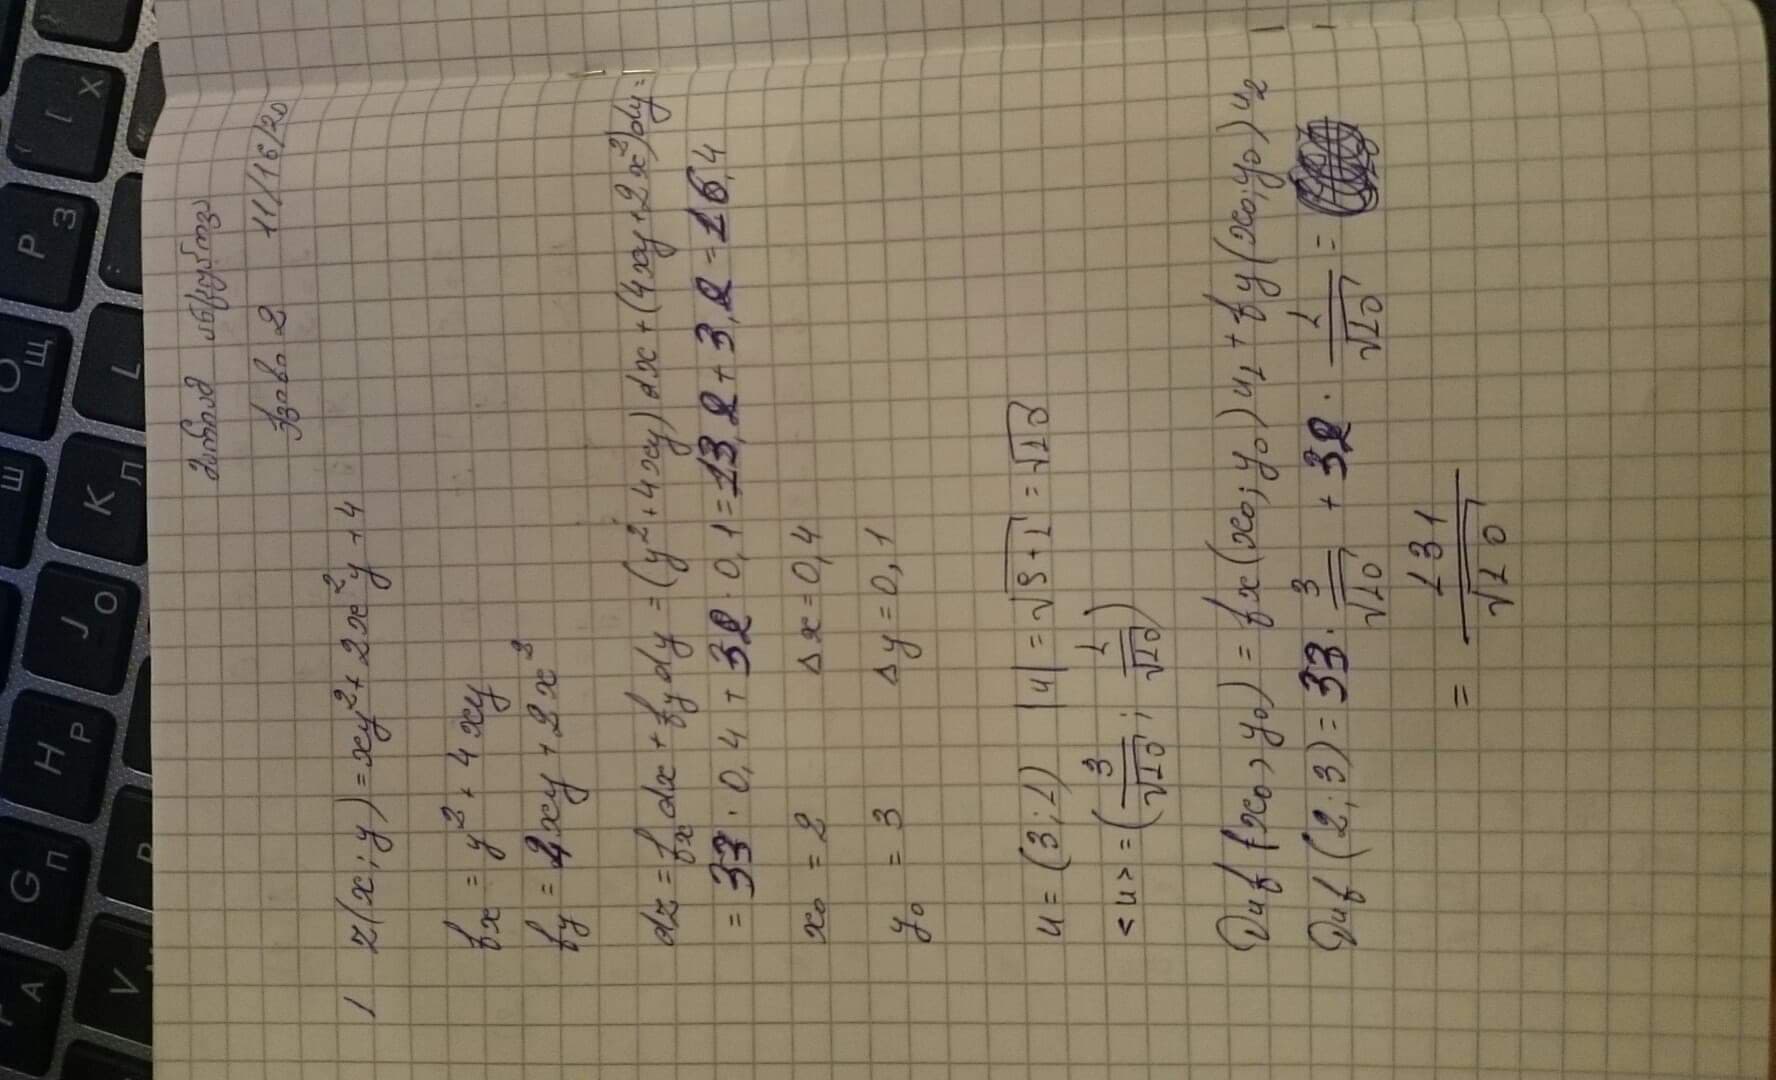 А G П Н Р J О К Л Ш L О Щ Р З [ Х V
მარიამ
ქვიზი 2 11/16/20
1 z(x;y)=xy²+2x²y+4
fx = y²+4xy
fy = 2xy+2x²
dz = fxdx+fydy=(y²+4xy)dx+(4xy+2x²)dy=
= 33·0,4+32·0,1=13,2+3,2=16,4
x₀ = 2 Δx=0,4
y₀ = 3 Δy=0,1
u=(3;1) |u|=√9+1=√10
<u>=(3/√10; 1/√10)
Duf(x₀,y₀)=fx(x₀;y₀)u₁+fy(x₀;y₀)u₂
Duf(2;3)=33·3/√10+32·1/√10=
= 131/√10